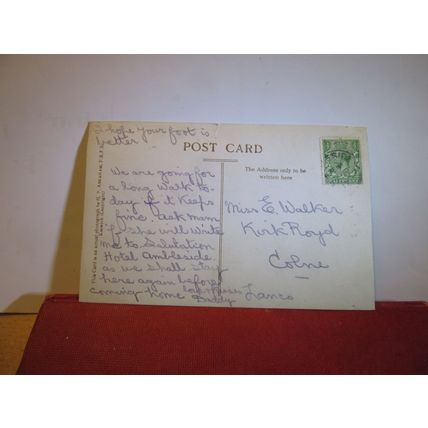 I hope your foot is
better
POST CARD
The Address only to be
written here
We are going for
a long Walk to-
day if it Keeps
fine ask mam
if she will Write
me to Salutation
Hotel Ambleside.
as we shall stay
here again before
coming home
Daddy
Miss E. Walker
Kirk Royd
Colne
Lancs
This Card is an actual photograph by